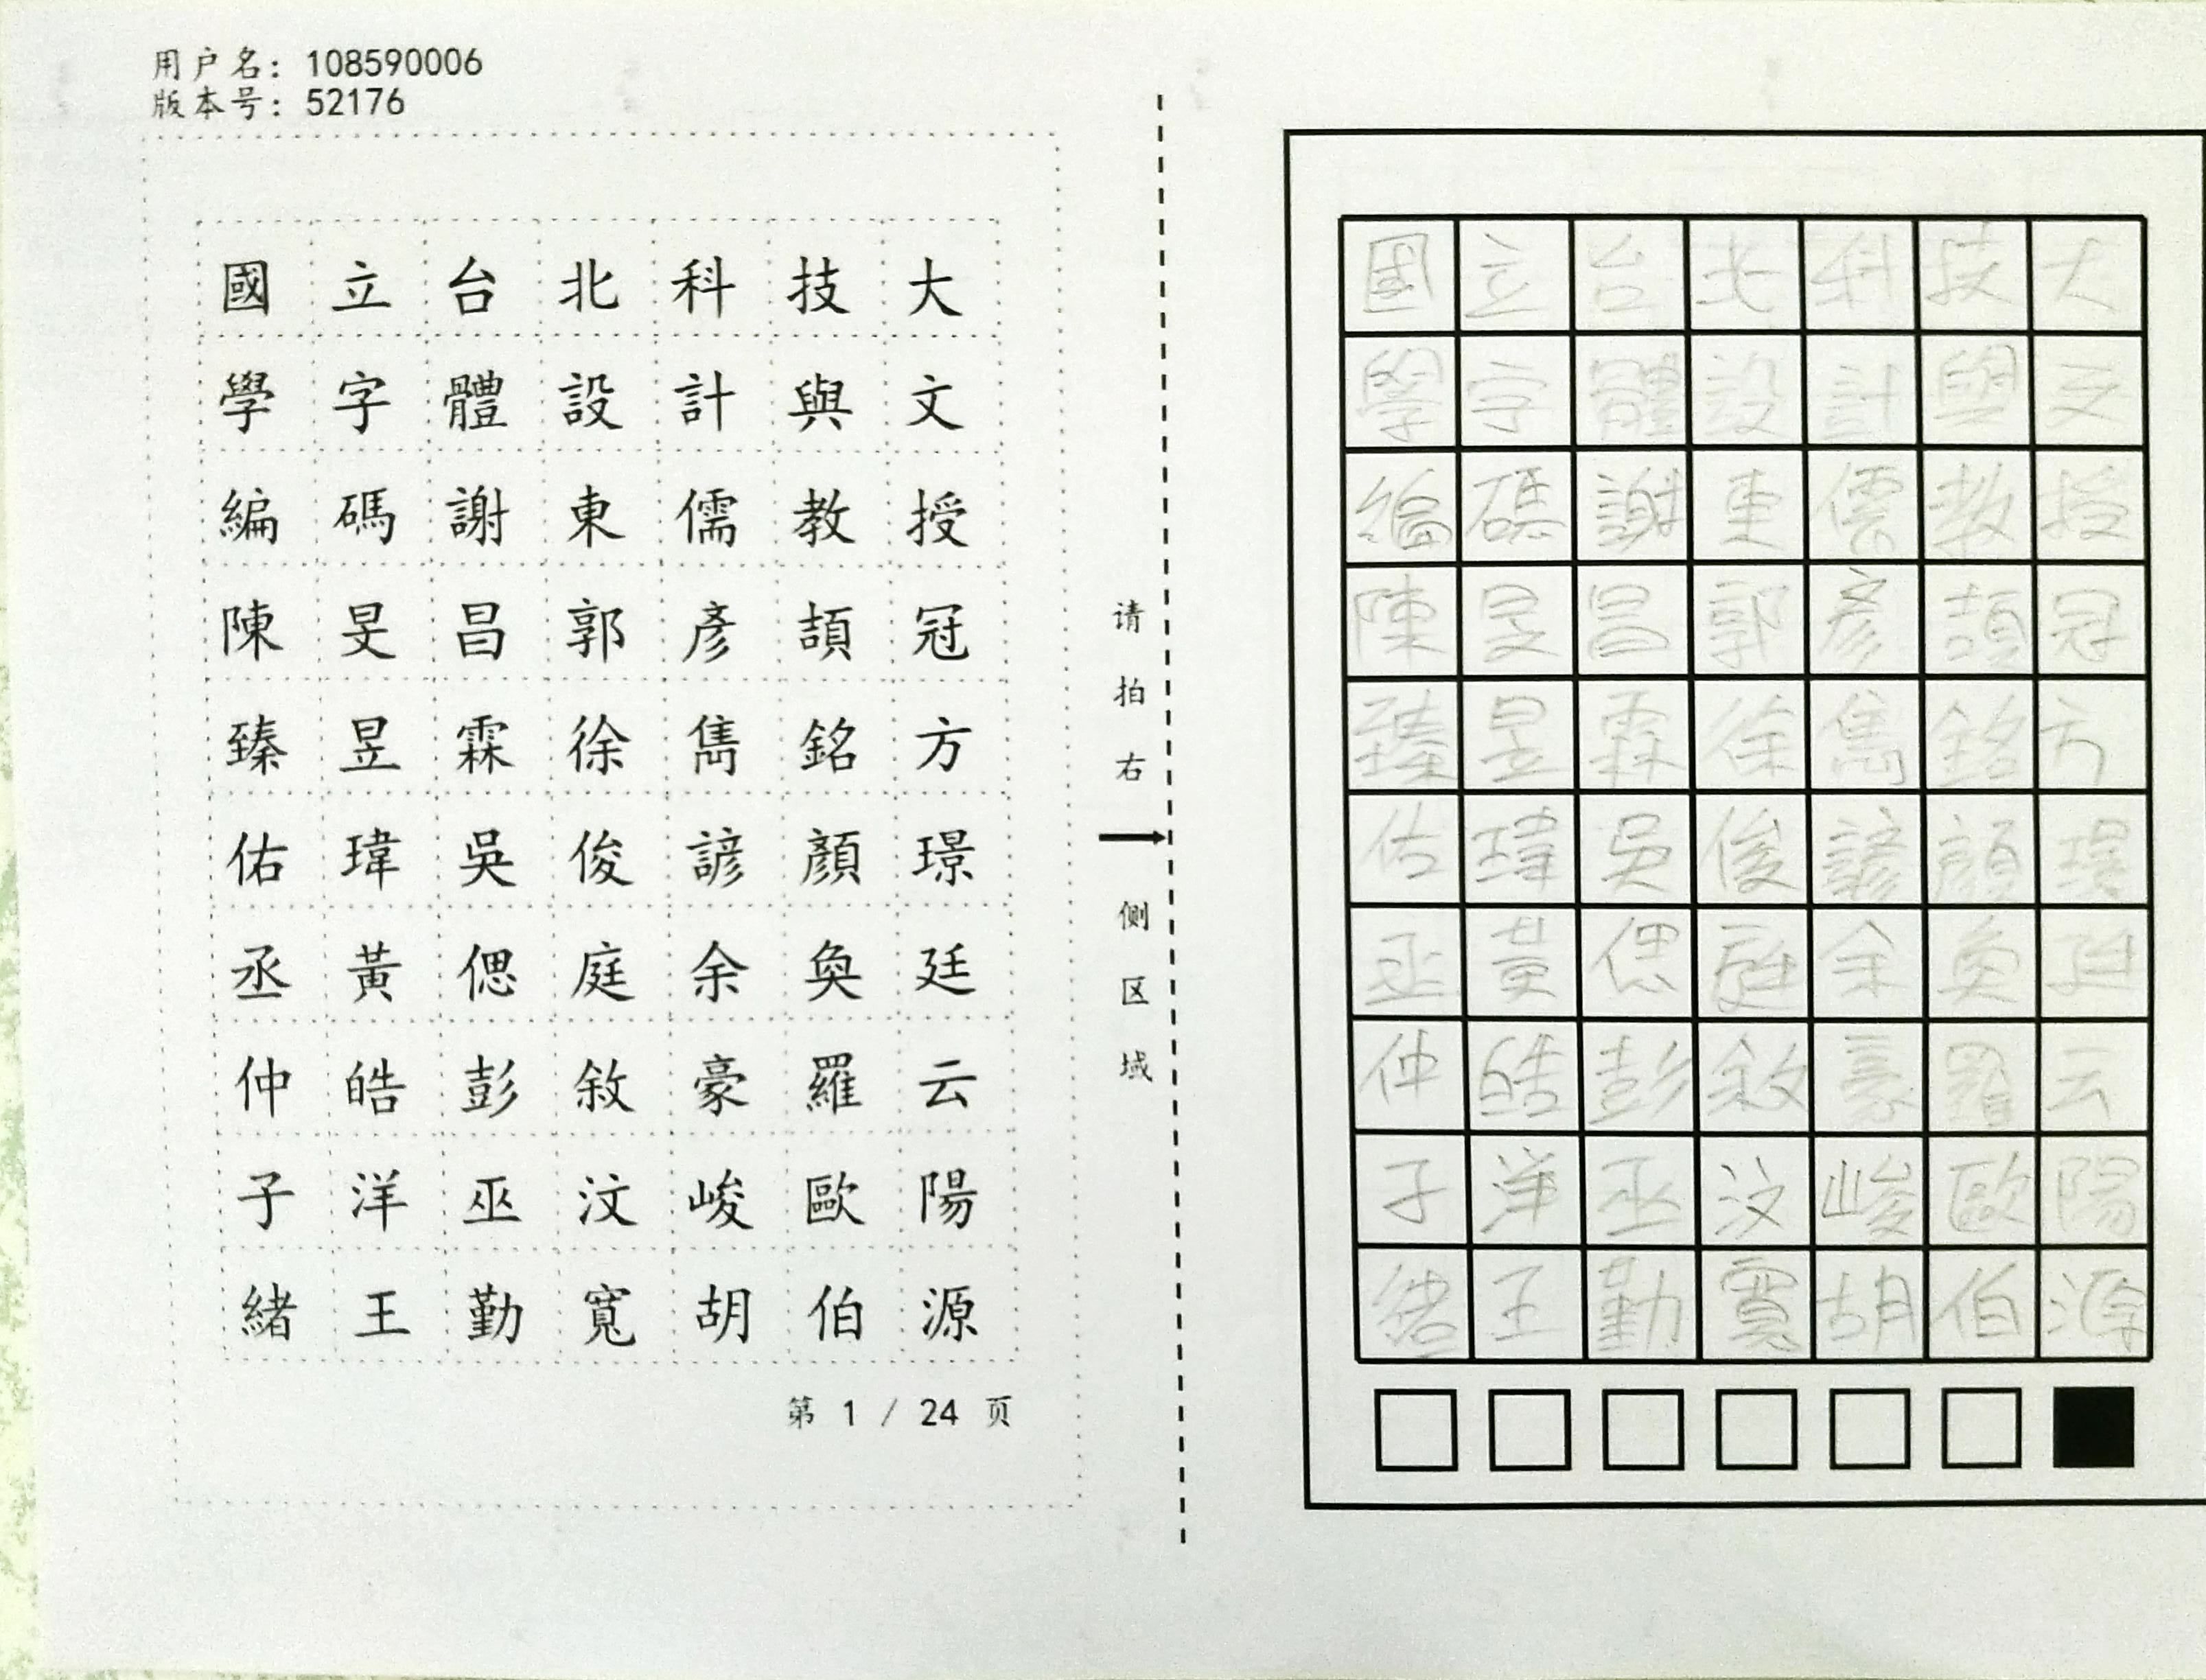 用户名: 108590006
版本号: 52176
國立台北科技大
學字體設計與文
編碼謝東儒教授
陳旻昌郭彥頡冠
臻昱霖徐雋銘方
佑瑋吳俊諺顏璟
丞黃偲庭余奐廷
仲皓彭敘豪羅云
子洋巫汶峻歐陽
緒王勤寬胡伯源
第 1 / 24 页
请拍右
侧区域
國立台北科技大
學字體設計與文
編碼謝東儒教授
陳旻昌郭彥頡冠
臻昱霖徐雋銘方
佑瑋吳俊諺顏璟
丞黃偲庭余奐廷
仲皓彭敘豪羅云
子洋巫汶峻歐陽
緒王勤寬胡伯源